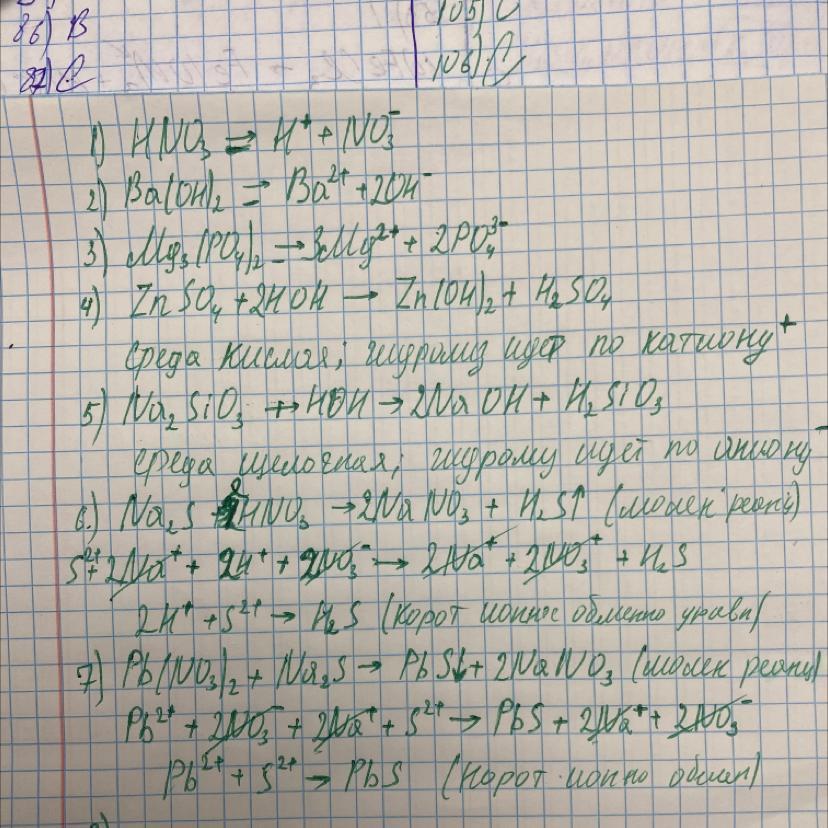 86) В
105) С
87) С
106) С
1) HNO₃ ⇌ H⁺ + NO₃⁻
2) Ba(OH)₂ ⇌ Ba²⁺ + 2OH⁻
3) Mg₃(PO₄)₂ → 3Mg²⁺ + 2PO₄³⁻
4) ZnSO₄ + 2HOH → Zn(OH)₂ + H₂SO₄
среда кислая; гидролиз идет по катиону⁺
5) Na₂SiO₃ + HOH → 2NaOH + H₂SiO₃
среда щелочная; гидролиз идет по аниону⁻
6.) Na₂S + 2HNO₃ → 2NaNO₃ + H₂S↑ (молек реакц)
S²⁺ + 2Na⁺ + 2H⁺ + 2NO₃⁻ → 2Na⁺ + 2NO₃⁺ + H₂S
2H⁺ + S²⁺ → H₂S (корот ионно обменно уравн)
7) Pb(NO₃)₂ + Na₂S → PbS↓ + 2NaNO₃ (молек реакц)
Pb²⁺ + 2NO₃⁻ + 2Na⁺ + S²⁺ → PbS + 2Na⁺ + 2NO₃⁻
Pb²⁺ + S²⁺ → PbS (корот ионно обмен)